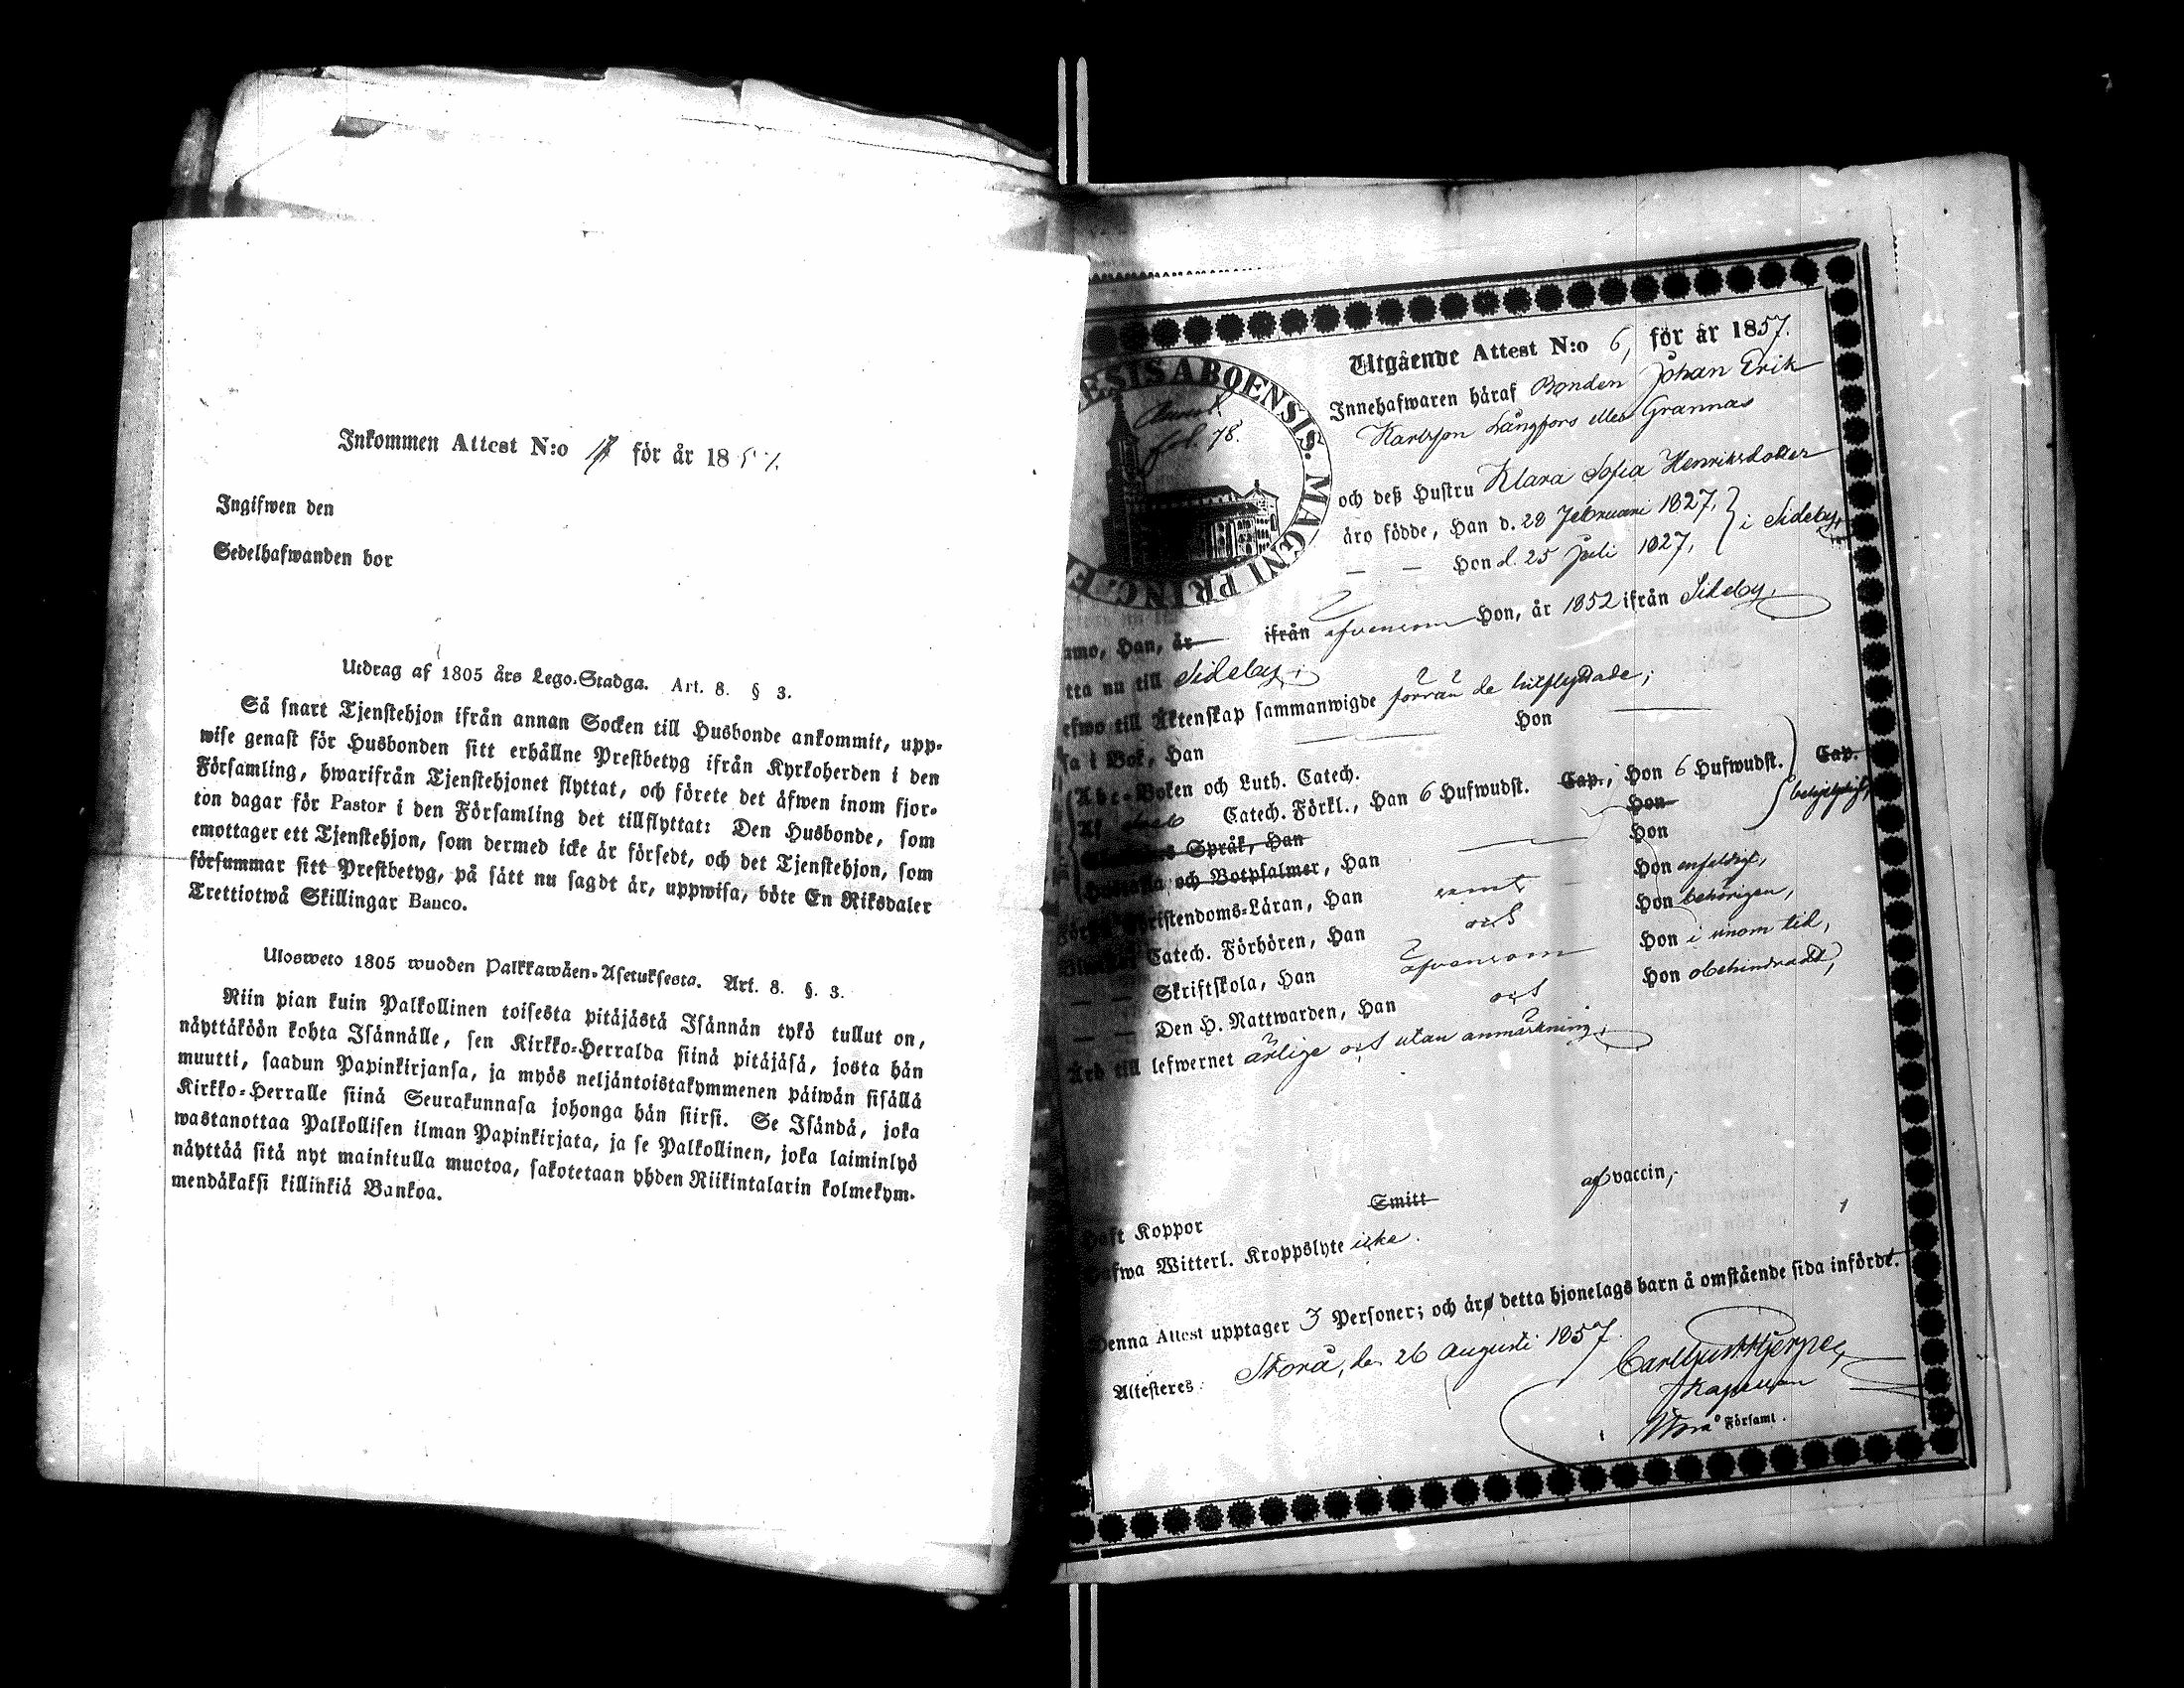 Inkommen Attest N:o 17 för år 1857.
Ingifwen den
Sedelhafwanden bor
Utdrag af 1805 års Lego-Stadga. Art. 8. § 3.
Så snart Tjenstehjon ifrån annan Socken till Husbonde ankommit, upp-
wise genast för Husbonden sitt erhållne Prestbetyg ifrån Kyrkoherden i den
Församling, hwarifrån Tjenstehjonet flyttat, och förete det äfwen inom fjor-
ton dagar för Pastor i den Församling det tillflyttat: Den Husbonde, som
emottager ett Tjenstehjon, som dermed icke är försedt, och det Tjenstehjon, som
försummar sitt Prestbetyg, på sätt nu sagdt är, uppwisa, böte En Riksdaler
Trettiotwå Skillingar Banco.
Ulosweto 1805 wuoden Palkkawäen-Asetuksesta. Art. 8. §. 3.
Niin pian kuin Palkollinen toisesta pitäjästä Isännän tykö tullut on,
näyttäköön kohta Isännälle, sen Kirkko-Herralda siinä pitäjäsä, josta hän
muutti, saadun Papinkirjansa, ja myös neljäntoistakymmenen päiwän sisällä
Kirkko-Herralle siinä Seurakunnasa johonga hän siirsi. Se Isändä, joka
wastanottaa Palkollisen ilman Papinkirjata, ja se Palkollinen, joka laiminlyö
näyttää sitä nyt mainitulla muotoa, sakotetaan yhden Riikintalarin kolmekym-
mendäkaksi killinkiä Bankoa.
ESIS ABOENSIS. MAGNI PRINC.
fol. 78.
Utgående Attest N:o 6, för år 1857.
Innehafwaren häraf Bonden Johan Erik
Karlsson Långfors eller Grannas
och deß Hustru Klara Sofia Henriksdotter
äro födde, Han d. 28 Februari 1827, } i Sideby,
— — Hon d. 25 Juli 1827,
Han, år ifrån äfvensom Hon, år 1852 ifrån Sideby,
tta nu till Sideby;
till Äktenskap sammanwigde förrän de hitflyttade;
i Bok, Han Hon
Abc-Boken och Luth. Catech.
Catech. Förkl., Han 6 Hufwudst. Cap.; Hon 6 Hufwudst. Cap.
Språk, Han Hon
och Botpsalmer, Han Hon
Christendoms-Läran, Han samt Hon enfaldigt,
Catech. Förhören, Han och Hon behörigen,
— — Skriftskola, Han äfvensom Hon i inom tid,
— — Den H. Nattwarden, Han och Hon obehindradt,
till lefwernet ärlige och utan anmärkning;
Haft Koppor Smitt af vaccin,
Hafwa Witterl. Kroppslyte icke.
Denna Attest upptager 3 Personer; och äro detta hjonelags barn å omstående sida införde.
Attesteres: Storå, den 26 Augusti 1857.
Carl Gust. Hjerpe,
Kapellan
Storå Församl.